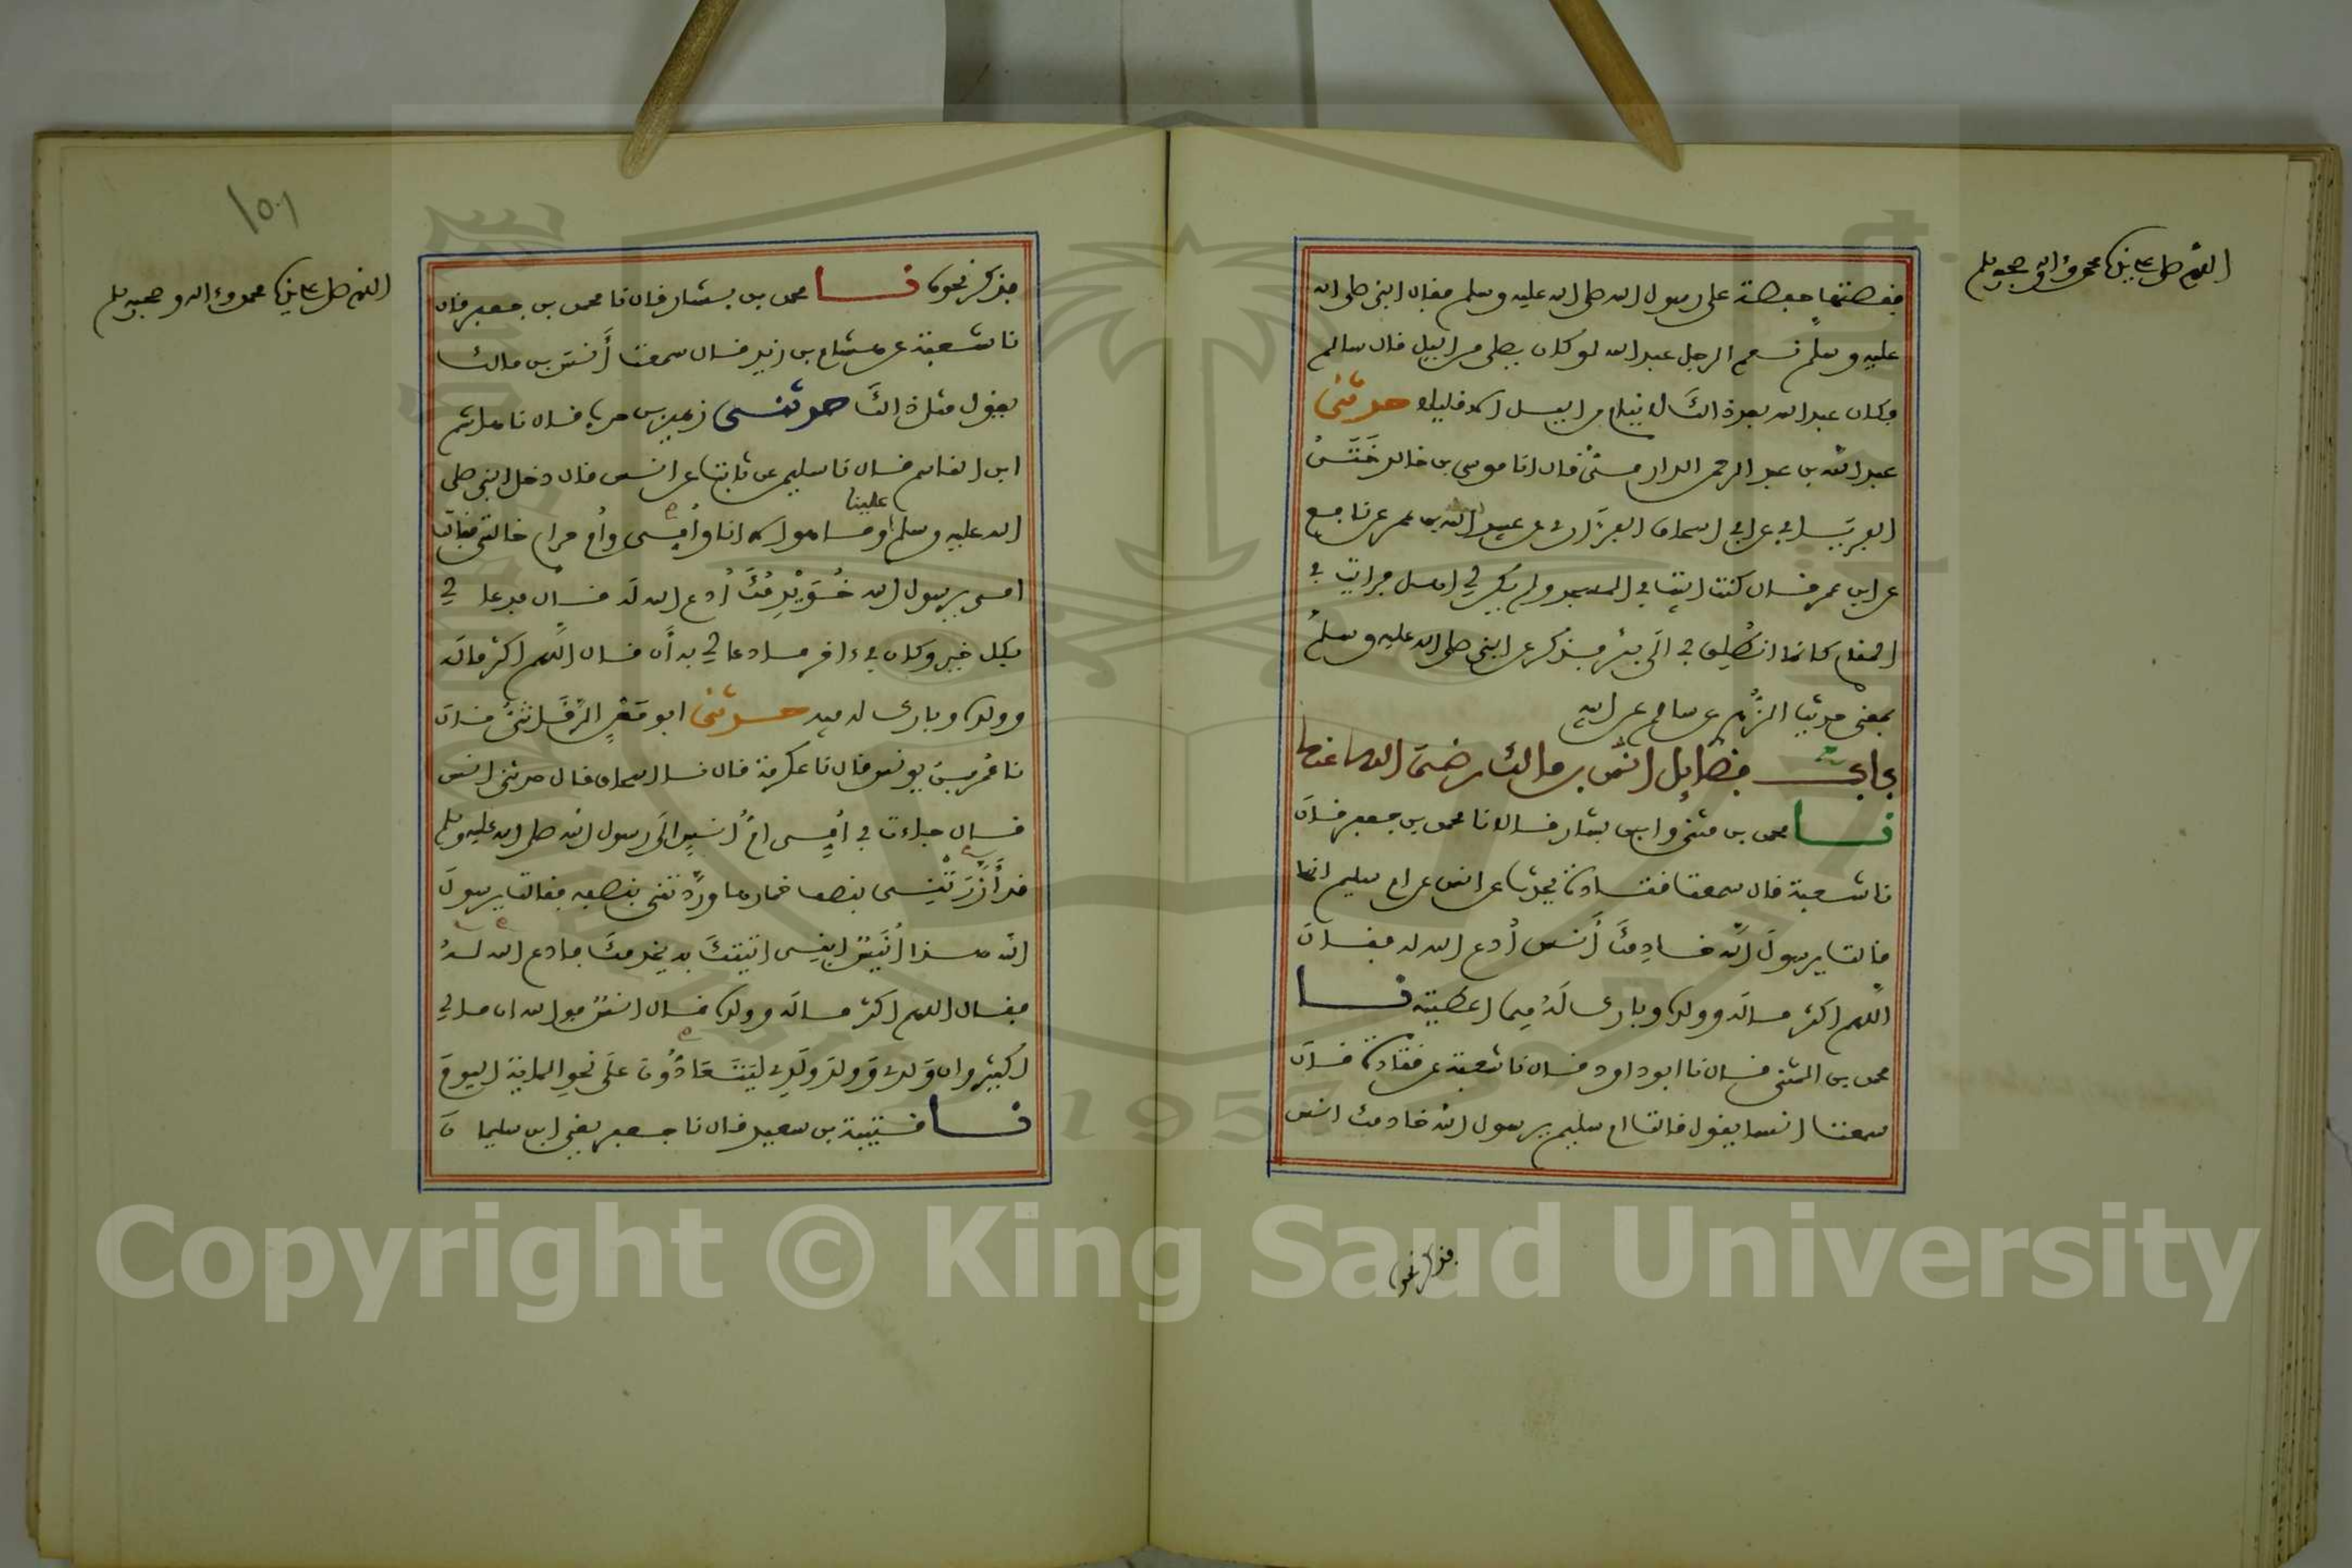 اللهم صل على نبينا محمد وءاله وصحبه وسلم
فقصتها حفصة على رسول الله صلى الله عليه وسلم فقال النبي صلى الله
عليه وسلم نعم الرجل عبد الله لو كان يصلي من اليل قال سالم
وكان عبد الله بعد ذالك لا ينام من اليل الا قليلا حدثني
عبد الله بن عبد الرحمن الدارمي قال انا موسى بن خالد ختن
الفريابي عن ابي اسحاق الفزاري عن عبيد الله بن عمر عن نافع
عن ابن عمر قال كنت ابيت في المسجد ولم يكن لي اهل فرايت في
المنام كانما انطلق بي الى بئر فذكر عن النبي صلى الله عليه وسلم
بمعنى حديث الزهري عن سالم عن ابيه
باب فضايل انس بن مالك رضي الله عنه
نا محمد بن مثنى وابن بشار قالا نا محمد بن جعفر قال
نا شعبة قال سمعت قتادة يحدث عن انس عن ام سليم انها
قالت يرسول الله خادمك أنس أدع الله له فقال
اللهم اكثر ماله وولده وبارك له فيما اعطيته نا
محمد بن المثنى قال نا ابو داود قال نا شعبة عن قتادة قال
سمعت انسا يقول قالت ام سليم يرسول الله خادمك انس
فذكر نحوه
١٥١
اللهم صل على نبينا محمد وءاله وصحبه وسلم
فذكر نحوه نا محمد بن بشار قال نا محمد بن جعفر قال
نا شعبة عن هشام بن زيد قال سمعت أنس بن مالك
يقول مثل ذالك حدثني زهير بن حرب قال نا هاشم
ابن القاسم قال نا سليمن عن ثابت عن انس قال دخل النبي صلى
الله عليه وسلم علينا وما هو الا انا وأمي وأم حرام خالتي فقالت
امي يرسول الله خويدمك أدع الله له قال فدعا لي
بكل خير وكان في ءاخر ما دعا لي به أن قال اللهم اكثر ماله
وولده وبارك له فيه حدثني ابو معن الرقاشي قال
نا عمر بن يونس قال نا عكرمة قال نا اسحاق قال حدثني انس
قال جاءت بي أمي ام أنس الى رسول الله صلى الله عليه وسلم
قد أزرتني بنصف خمارها وردتني بنصفه فقالت يرسول
الله هذا أنيس ابني اتيتك به يخدمك فادع الله له
فقال اللهم اكثر ماله وولده قال انس فوالله ان مالي
لكثير وان ولدي وولد ولدي ليتعادون على نحو المائة اليوم
نا قتيبة بن سعيد قال نا جعفر يعني ابن سليمان
Copyright © King Saud University